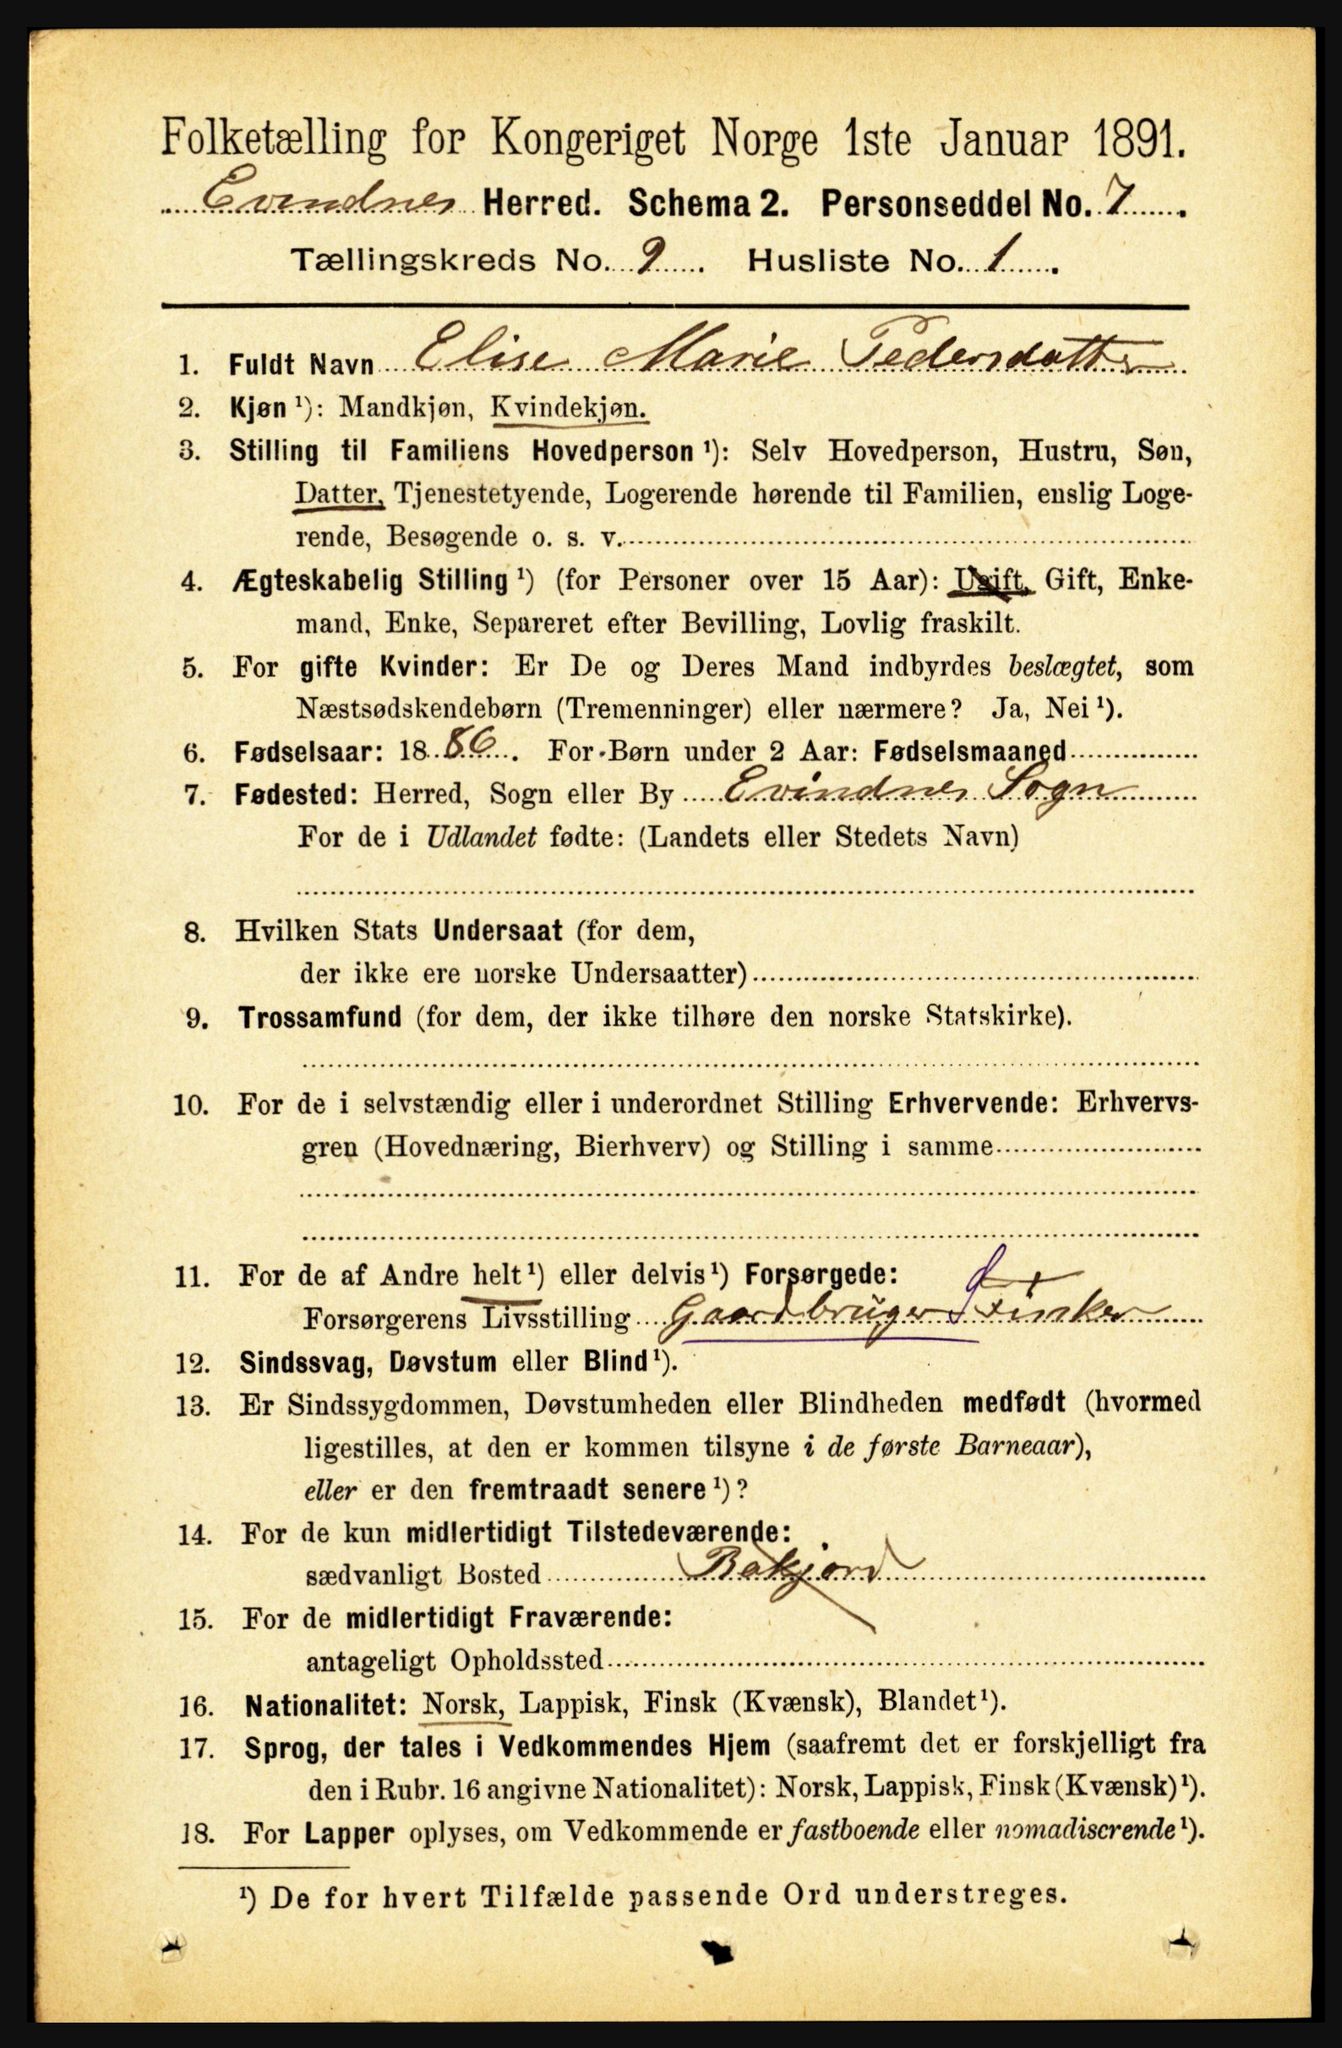 Folketælling for Kongeriget Norge 1ste Januar 1891.
Evindnes Herred. Schema 2. Personseddel No. 7.
Tællingskreds No. 9. Husliste No. 1.
1. Fuldt Navn Elise Marie Pedersdatter
2. Kjøn ¹): Mandkjøn, Kvindekjøn.
3. Stilling til Familiens Hovedperson ¹): Selv Hovedperson, Hustru, Søn,
Datter, Tjenestetyende, Logerende hørende til Familien, enslig Loge-
rende, Besøgende o. s. v.
4. Ægteskabelig Stilling ¹) (for Personer over 15 Aar): Ugift, Gift, Enke-
mand, Enke, Separeret efter Bevilling, Lovlig fraskilt.
5. For gifte Kvinder: Er De og Deres Mand indbyrdes beslægtet, som
Næstsødskendebørn (Tremenninger) eller nærmere? Ja, Nei ¹).
6. Fødselsaar: 1886. For Børn under 2 Aar: Fødselsmaaned
7. Fødested: Herred, Sogn eller By Evindnes Sogn
For de i Udlandet fødte: (Landets eller Stedets Navn)
8. Hvilken Stats Undersaat (for dem,
der ikke ere norske Undersaatter)
9. Trossamfund (for dem, der ikke tilhøre den norske Statskirke).
10. For de i selvstændig eller i underordnet Stilling Erhvervende: Erhvervs-
gren (Hovednæring, Bierhverv) og Stilling i samme
11. For de af Andre helt ¹) eller delvis ¹) Forsørgede:
Forsørgerens Livsstilling Gaardbruger Fisker
12. Sindssvag, Døvstum eller Blind ¹).
13. Er Sindssygdommen, Døvstumheden eller Blindheden medfødt (hvormed
ligestilles, at den er kommen tilsyne i de første Barneaar),
eller er den fremtraadt senere ¹)?
14. For de kun midlertidigt Tilstedeværende:
sædvanligt Bosted Bakjord
15. For de midlertidigt Fraværende:
antageligt Opholdssted
16. Nationalitet: Norsk, Lappisk, Finsk (Kvænsk), Blandet ¹).
17. Sprog, der tales i Vedkommendes Hjem (saafremt det er forskjelligt fra
den i Rubr. 16 angivne Nationalitet): Norsk, Lappisk, Finsk (Kvænsk) ¹).
18. For Lapper oplyses, om Vedkommende er fastboende eller nomadiserende ¹).
¹) De for hvert Tilfælde passende Ord understreges.